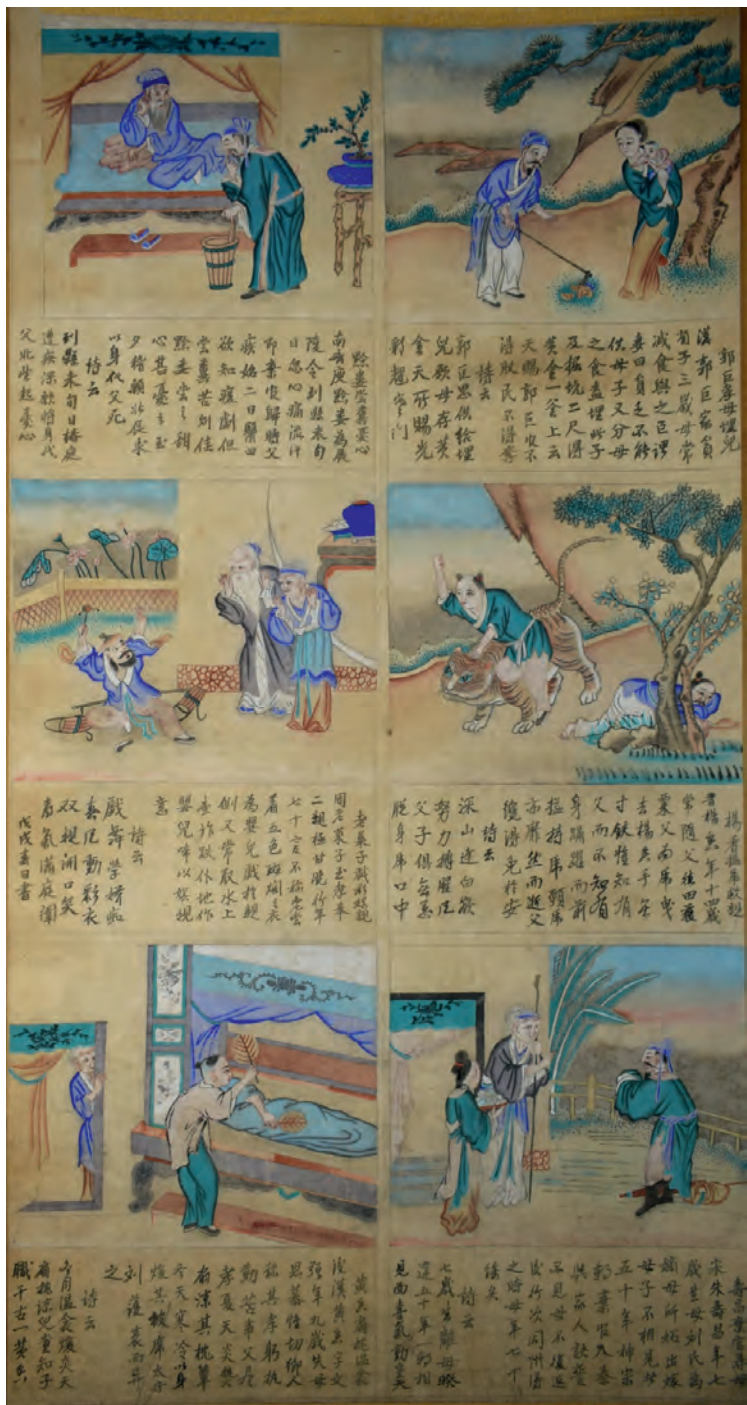 郭巨為母埋兒
漢郭巨家貧
有子三歲母常
減食與之巨謂
妻曰貧乏不能
供母子又分母
之食盍埋此子
及掘坑二尺得
黃金一釜上云
天賜郭巨官不
得取民不得奪
詩云
郭巨思供給埋
兒願母存黃
金天所賜光
彩照寒門
黔婁嘗糞憂心
南齊庾黔婁為孱
陵令到縣未旬
日忽心痛流汗
即棄官歸時父
疾始二日醫曰
欲知瘥劇但
嘗糞苦則佳
黔婁嘗之甜
心甚憂之至
夕稽顙北辰求
以身代父死
詩云
到縣未旬日椿庭
遺疾深願將身代
父北望起憂心
楊香搤虎救親
晉楊香年十四歲
常隨父往田穫
粟父為虎曳
去楊香手無
寸鉄惟知有
父而不知有
身踴躍而前
搤持虎頸虎
亦靡然而逝父
纔得免於害
詩云
深山逢白額
努力搏腥風
父子俱無恙
脫身虎口中
老萊子戲彩娛親
周老萊子至孝奉
二親極甘脆行年
七十言不稱老常
着五色斑斕之衣
為嬰兒戲於親
側又常取水上
堂詐跌仆地作
嬰兒啼以娛親
意
詩云
戲舞學嬌痴
春風動彩衣
双親開口笑
喜氣滿庭闈
戊戌春日書
壽昌棄官尋母
宋朱壽昌年七
歲生母劉氏為
嫡母所妬出嫁
母子不相見者
五十年神宗
朝棄官入秦
與家人訣誓
不見母不復還
後行次同州得
之時母年七十
餘矣
詩云
七歲生離母睽
違五十年一朝相
見面喜氣動皇天
黃香扇枕溫衾
後漢黃香字文
強年九歲失母
思慕惟切鄉人
稱其孝躬執
勤苦事父盡
孝夏天炎熱
扇涼其枕簟
冬天寒冷以身
煖其被席太守
劉護表而異
之
詩云
冬月溫衾煖炎天
扇枕涼兒童知子
職千古一黃香